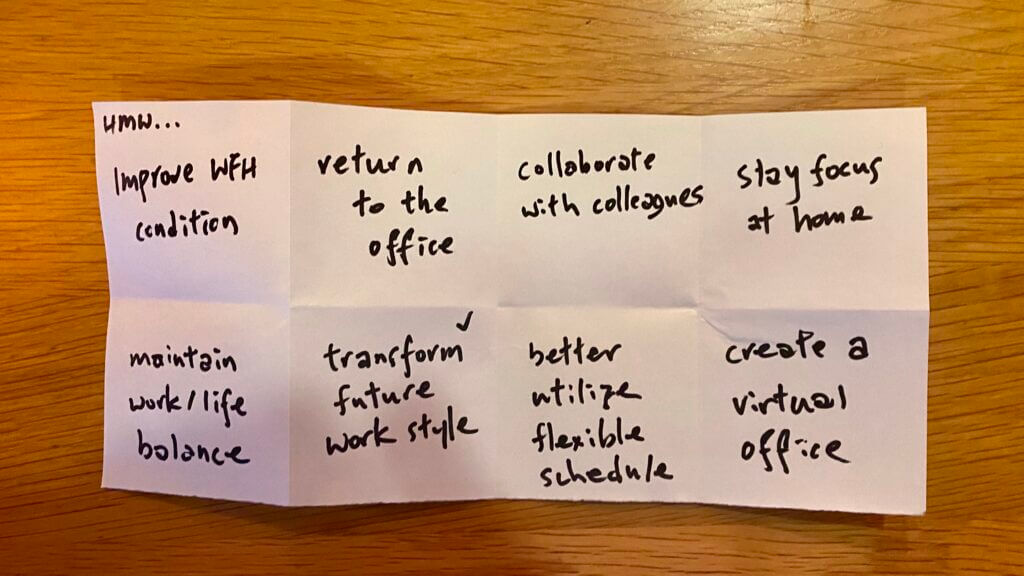 HMW...
Improve WFH
condition
return
to the
office
collaborate
with colleagues
stay focus
at home
maintain
work/life
balance
✓
transform
future
work style
better
utilize
flexible
schedule
create a
virtual
office